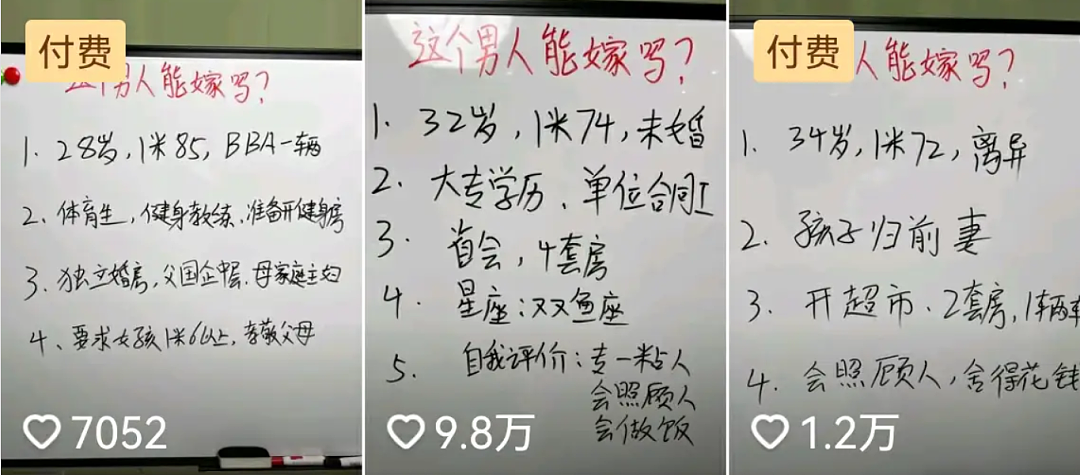 付费
这个男人能嫁吗？
1. 28岁，1米85，BBA一辆
2、体育生，健身教练、准备开健身房
3、独立婚房，父国企中层、母家庭主妇
4、要求女孩1米6以上，孝敬父母
7052
这个男人能嫁吗？
1. 32岁，1米74，未婚
2. 大专学历、单位合同工
3. 省会，4套房
4. 星座：双鱼座
5. 自我评价：专一粘人
会照顾人
会做饭
9.8万
付费
人能嫁吗？
1. 34岁，1米72，离异
2. 孩子归前妻
3. 开超市、2套房，1辆车
4. 会照顾人，舍得花钱
1.2万